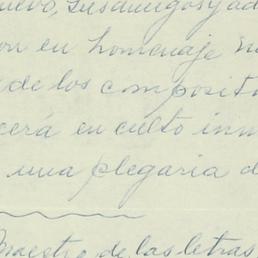 nuevo, sus amigos y ad
on en homenaje
de los composito
cerá en culto inm
una plegaria d
Maestro de las letras